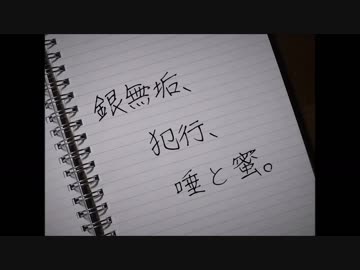 銀無垢、
犯行、
唾と蜜。